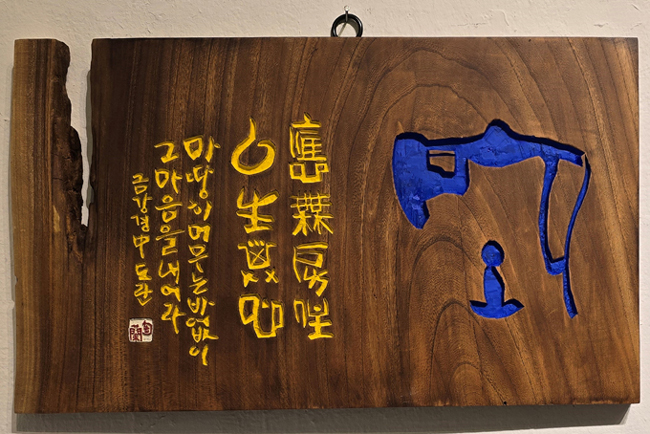 應無所住
而生其心
마땅히 머무는 바 없이
그 마음을 내어라
금강경 中